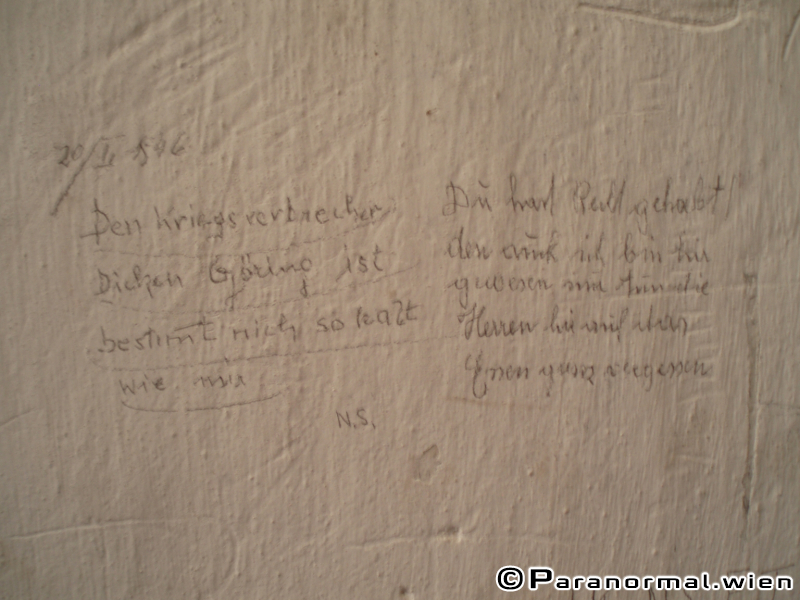 20/II 1946
Den Kriegsverbrecher
Dicken Göring ist
bestimt nich so kalt
wie mir
N.S.
Du hast Recht gehabt
den auch ich bin hir
gewesen nur tun die
Herren hir auf das
Essen ganz vergessen
©Paranormal.wien